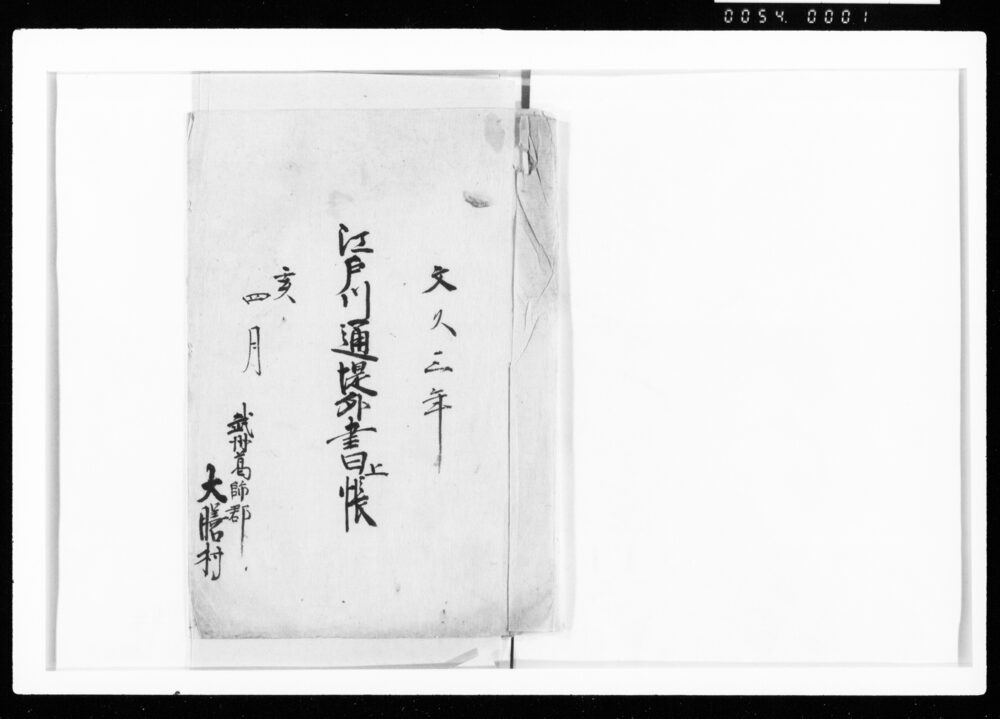 0054. 0001
文久三年
江戸川通堤外書上帳
亥
四月
武州葛飾郡
大膳村